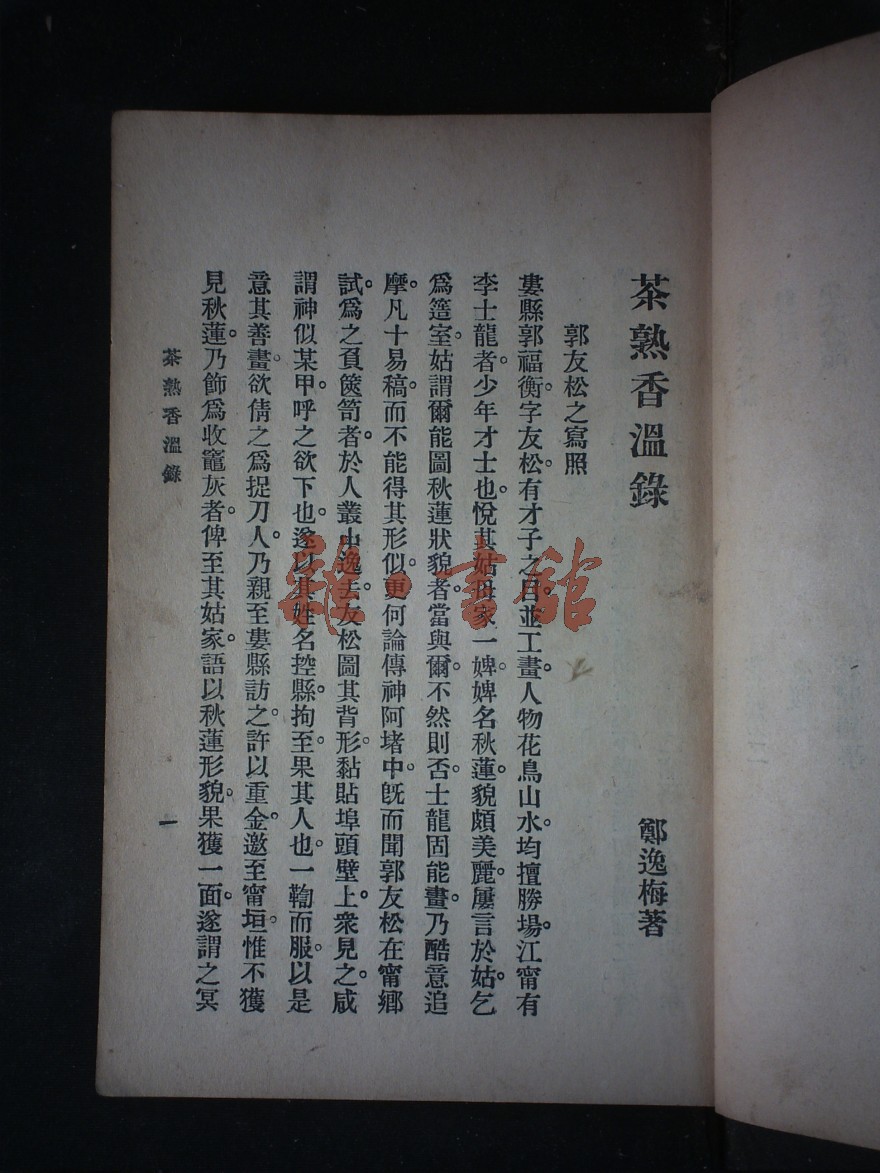 茶熟香溫錄
鄭逸梅著
郭友松之寫照
婁縣郭福衡。字友松。有才子之目。並工畫。人物花鳥山水。均擅勝場。江甯有
李士龍者。少年才士也。悅其姑母家一婢。婢名秋蓮。貌頗美麗。屢言於姑。乞
爲簉室。姑謂爾能圖秋蓮狀貌者。當與爾。不然則否。士龍固能畫。乃酷意追
摩。凡十易稿。而不能得其形似。更何論傳神阿堵中。旣而聞郭友松在甯鄉
試。爲之負篋笥者。於人叢中逸去。友松圖其背形。黏貼埠頭壁上。衆見之。咸
謂神似某甲。呼之欲下也。遂以其姓名控縣。拘至。果其人也。一鞫而服。以是
意其善畫。欲倩之爲捉刀人。乃親至婁縣訪之。許以重金。邀至甯垣。惟不獲
見秋蓮。乃飾爲收竈灰者。俾至其姑家。語以秋蓮形貌。果獲一面。遂謂之冥
茶熟香溫錄
一
雜·書館